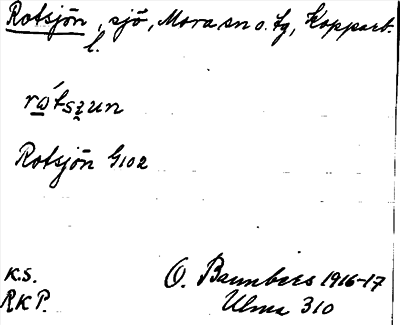 Rotsjön, sjö, Mora sn o. tg, Kopparb.
l.
ro̲´tsz̬un
Rotsjön G102
K.S.
RKP.
O. Bannbers 1916-17
Ulma 310